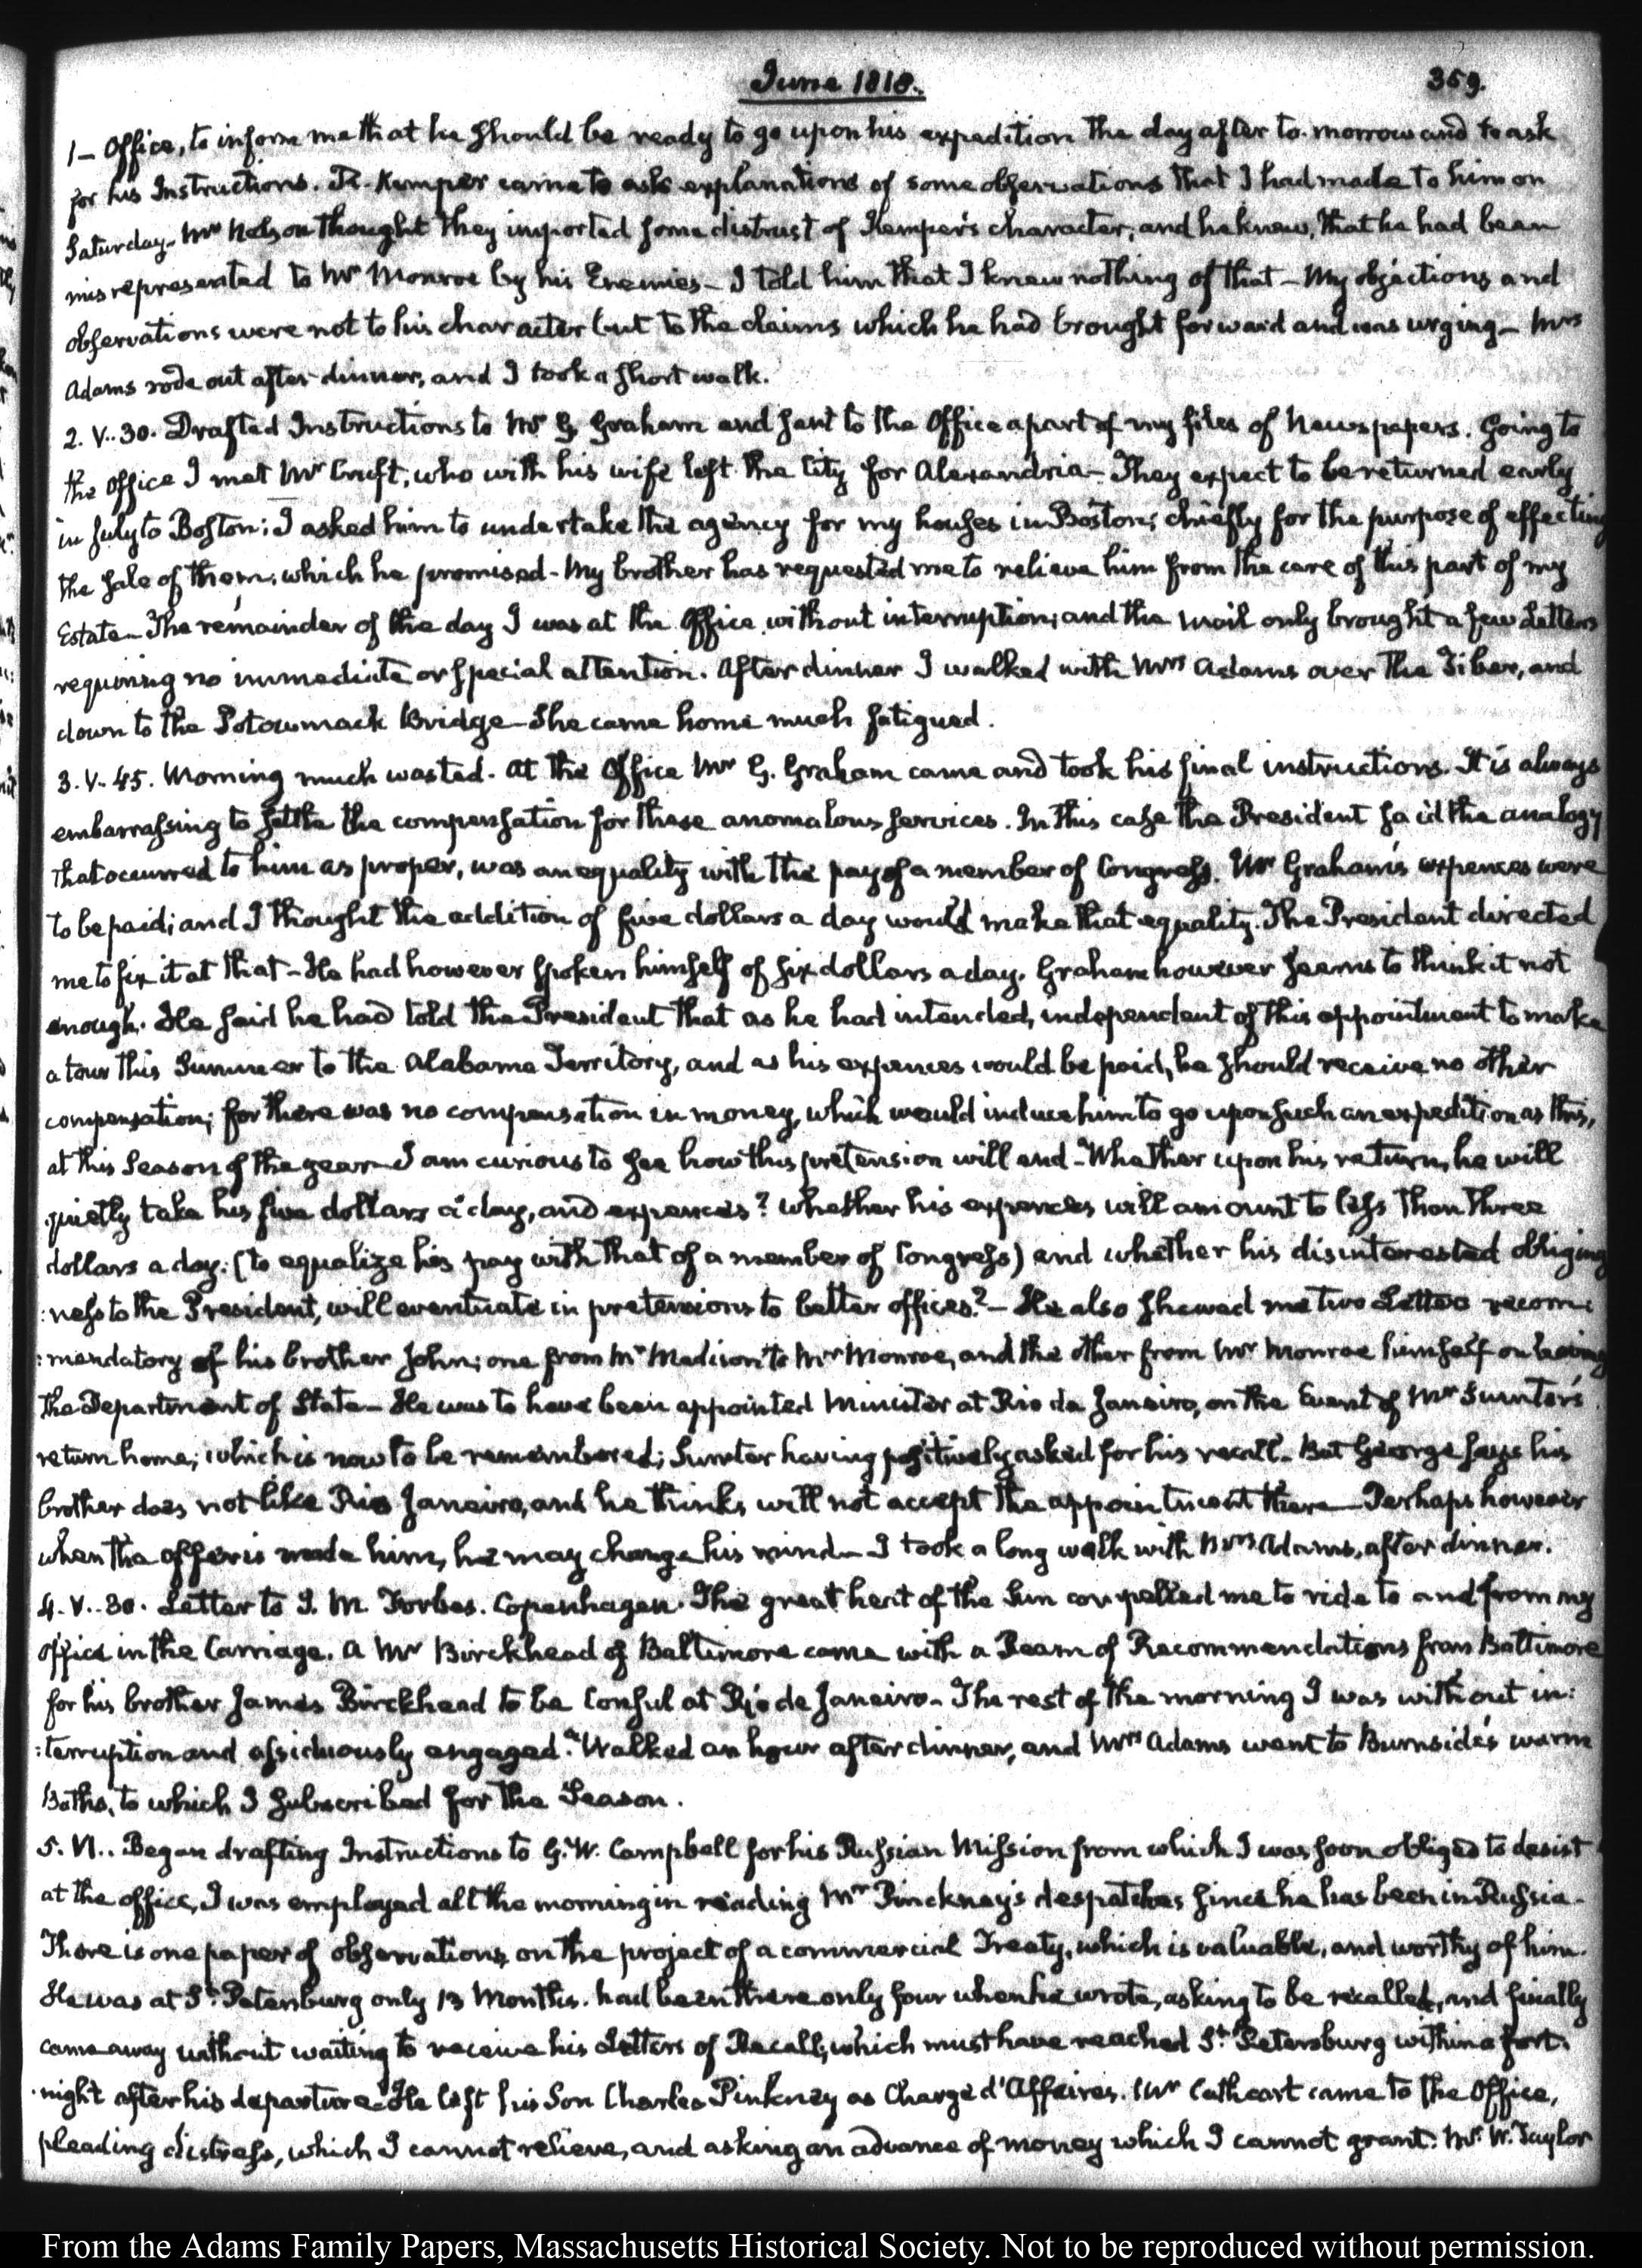 June 1818.
359.
1 - Office, to inform me that he should be ready to go upon his expedition the day after to-morrow and to ask
for his Instructions. Kemper came to ask explanations of some observations that I had made to him on
Saturday. Mr Nelson thought they imported some distrust of Kemper's character, and he knew, that he had been
misrepresented to Mr Monroe by his Enemies - I told him that I knew nothing of that - My objections and
observations were not to his character but to the claims which he had brought forward and was urging - Mrs
Adams rode out after dinner, and I took a short walk.
2. V..30. Drafted Instructions to Mr G. Graham and sent to the Office a part of my files of Newspapers. Going to
the office I met Mr Cruft, who with his wife left the City for Alexandria - They expect to be returned early
in July to Boston: I asked him to undertake the agency for my houses in Boston; chiefly for the purpose of effecting
the sale of them; which he promised - My brother has requested me to relieve him from the care of this part of my
Estate - The remainder of the day I was at the Office without interruption; and the mail only brought a few Letters
requiring no immediate or special attention. After dinner I walked with Mrs Adams over the Tiber, and
down to the Potowmack Bridge - She came home much fatigued.
3. V. 45. Morning much wasted. At the Office Mr G. Graham came and took his final instructions. It is always
embarrassing to settle the compensation for these anomalous services. In this case the President said the analogy
that occurred to him as proper, was an equality with the pay of a member of Congress. Mr Graham's expences were
to be paid; and I thought the addition of five dollars a day would make that equality. The President directed
me to fix it at that - He had however spoken himself of six dollars a day. Graham however seems to think it not
enough. He said he had told the President that as he had intended, independent of this appointment to make
a tour this Summer to the Alabama Territory, and as his expences would be paid, he should receive no other
compensation; for there was no compensation in money, which would induce him to go upon such an expedition as this,
at this Season of the year - I am curious to see how this pretension will end - Whether upon his return, he will
quietly take his five dollars a day, and expences? whether his expences will amount to less than three
dollars a day. (to equalize his pay with that of a member of Congress) and whether his disinterested obliging
:ness to the President, will eventuate in pretensions to better offices? - He also shewed me two Letters recom:
:mendatory of his brother John; one from Mr Madison to Mr Monroe, and the other from Mr Monroe himself on leaving
the Department of State - He was to have been appointed Minister at Rio de Janeiro, on the Event of Mr Sumter's
return home; which is now to be remembered; Sumter having positively asked for his recall. But George says his
brother does not like Rio Janeiro, and he thinks will not accept the appointment there - Perhaps however
when the offer is made him, he may change his mind - I took a long walk with Mrs Adams, after dinner.
4. V..30. Letter to J. M. Forbes. Copenhagen. The great heat of the Sun compelled me to ride to and from my
office in the Carriage. A Mr Birckhead of Baltimore came with a Ream of Recommendations from Baltimore
for his brother James Birckhead to be Consul at Rio de Janeiro - The rest of the morning I was without in:
:terruption and assiduously engaged. Walked an hour after dinner, and Mrs Adams went to Burnside's warm
Baths, to which I subscribed for the Season.
5. VI.. Began drafting Instructions to G. W. Campbell for his Russian Mission from which I was soon obliged to desist
at the office, I was employed all the morning in reading Mr Pinckney's despatches since he has been in Russia -
There is one paper of observations on the project of a commercial Treaty, which is valuable, and worthy of him.
He was at St. Petersburg only 13 Months. had been there only four when he wrote, asking to be recalled, and finally
came away without waiting to receive his Letters of Recall, which must have reached St. Petersburg within a fort.
night after his departure - He left his Son Charles Pinkney as Chargé d'Affaires. Mr Cathcart came to the Office,
pleading distress, which I cannot relieve, and asking an advance of money which I cannot grant. Mr. W. Taylor
From the Adams Family Papers, Massachusetts Historical Society. Not to be reproduced without permission.